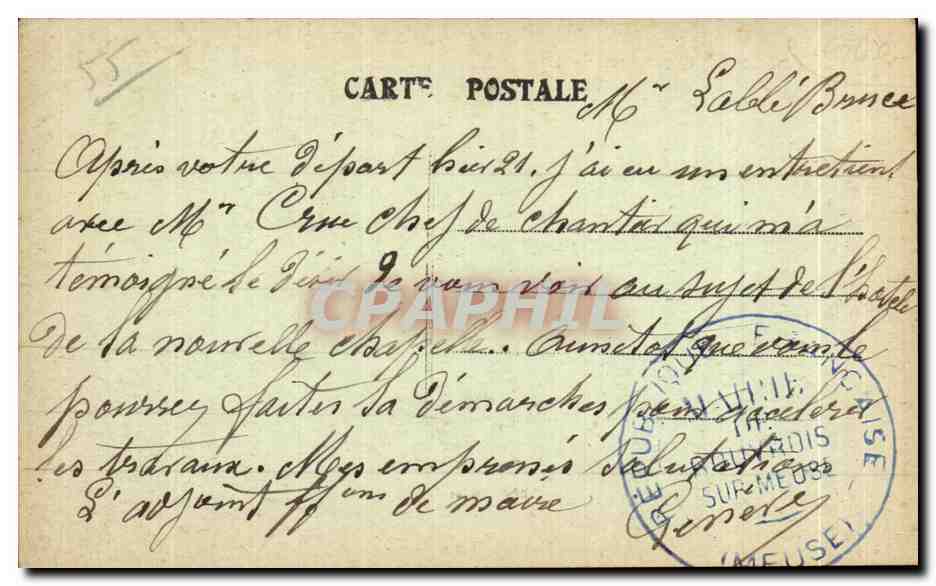 55
CARTE POSTALE
Mr L'abbé
Après votre départ hier 21, j'ai eu un entretient
avec Mr Crue chef de chantier qui m'a
témoigné le désir de vous voir au sujet de l'hotel
de la nouvelle chapelle. Aussitot que vous le
pourrez faites la démarches pour accelerer
les travaux. Mes empressés salutations
L'adjoint ffons de maire
CPAPHIL
REPUBLIQUE FRANÇAISE
MAIRIE
DE
ROUVROIS
SUR-MEUSE
(MEUSE)